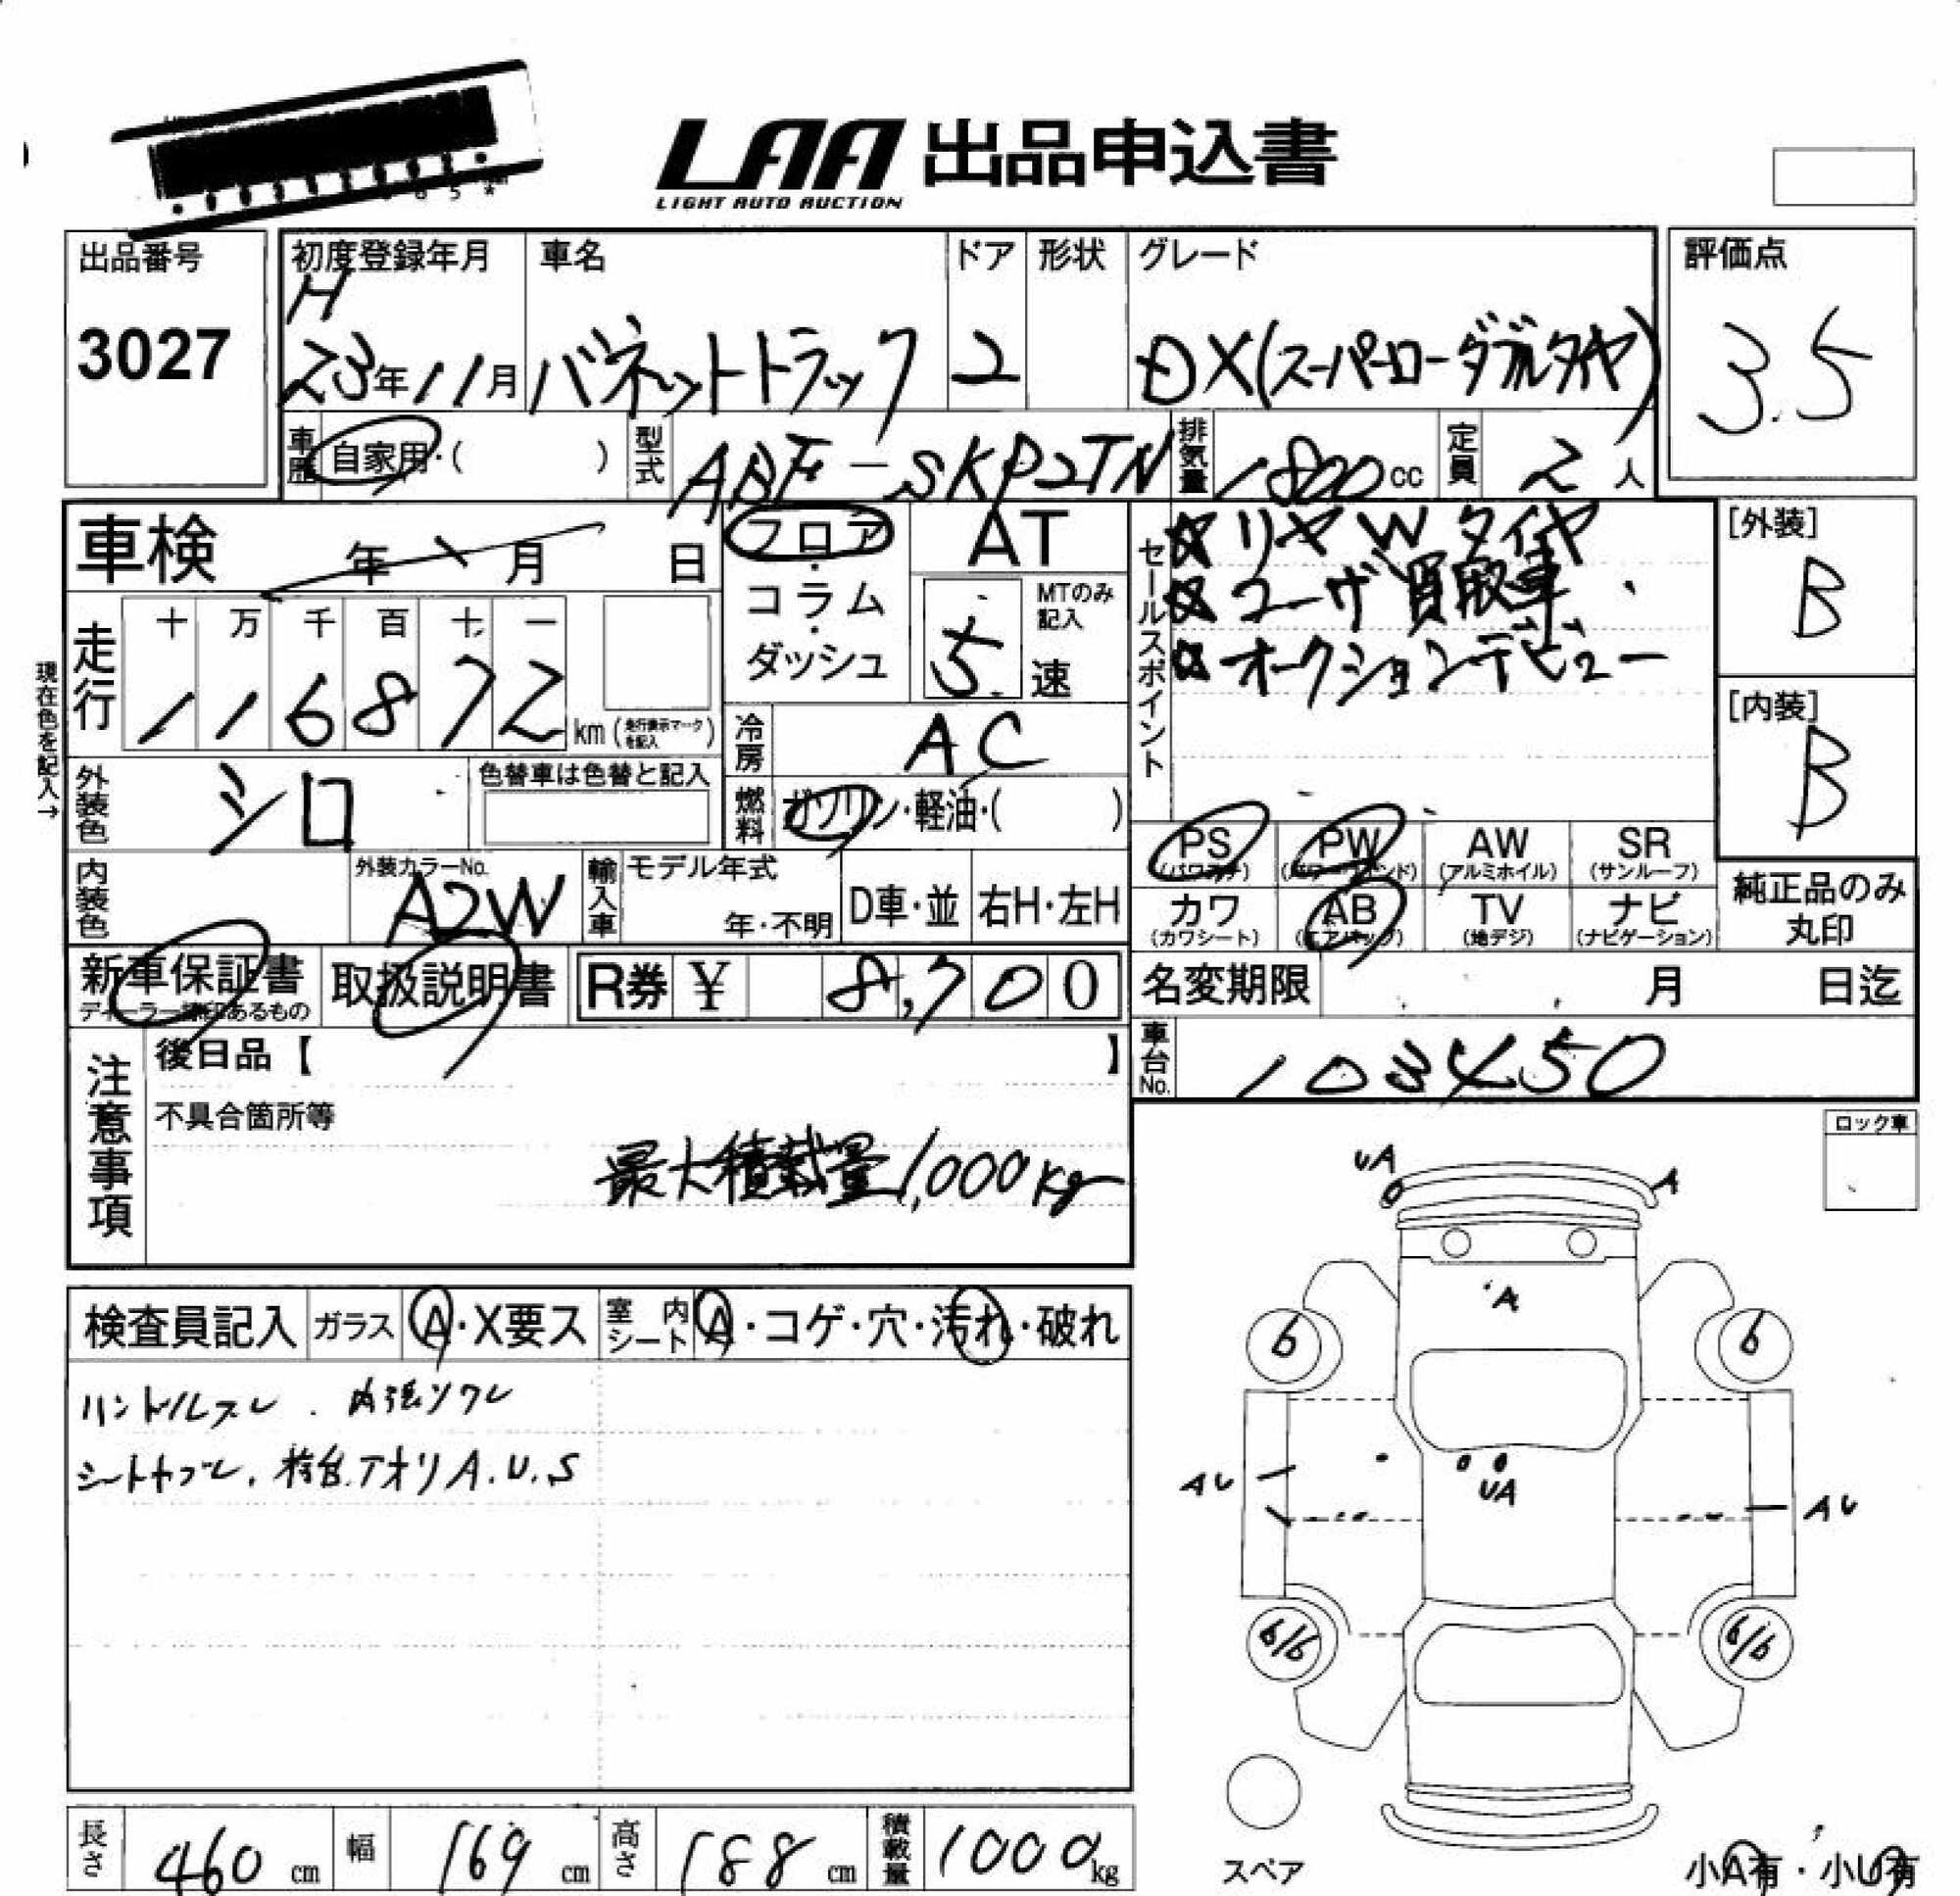 LAA 出品申込書
LIGHT AUTO AUCTION
出品番号
3027
初度登録年月
H
23年11月
車名
バネットトラック
ドア
2
形状
グレード
DX(スーパーローダブルタイヤ)
評価点
3.5
車歴
自家用・( )
型式
ABF-SKP2TN
排気量
1800cc
定員
2人
車検
年 月 日
フロア・コラム・ダッシュ
AT
MTのみ記入
5速
セールスポイント
☆リヤWタイヤ
☆ユーザ買取車
☆オークションデビュー
[外装]
B
[内装]
B
現在色を記入→
走行
十 万 千 百 十 一
1 1 6 8 7 2
km(走行表示マークを記入)
冷房
AC
外装色
シロ
色替車は色替と記入
燃料
ガソリン・軽油・( )
PS (パワステ)
PW (パワーウインド)
AW (アルミホイル)
SR (サンルーフ)
内装色
外装カラーNo.
A2W
輸入車
モデル年式
年・不明
D車・並
右H・左H
カワ (カワシート)
AB (エアバッグ)
TV (地デジ)
ナビ (ナビゲーション)
純正品のみ丸印
新車保証書
ディーラー捺印あるもの
取扱説明書
R券 ¥ 8,700
名変期限 月 日迄
注意事項
後日品【 】
車台No.
103450
不具合箇所等
最大積載量1,000kg
ロック車
検査員記入
ガラス
A・X要ス
室内シート
A・コゲ・穴・汚れ・破れ
ハンドルスレ . 内張ソウレ
シートヤブレ, 荷台.アオリA.U.S
UA
A
A
6
6
AU
UA
AU
6/6
6/6
スペア
小A有・小U有
長さ
460cm
幅
169cm
高さ
188cm
積載量
1000kg